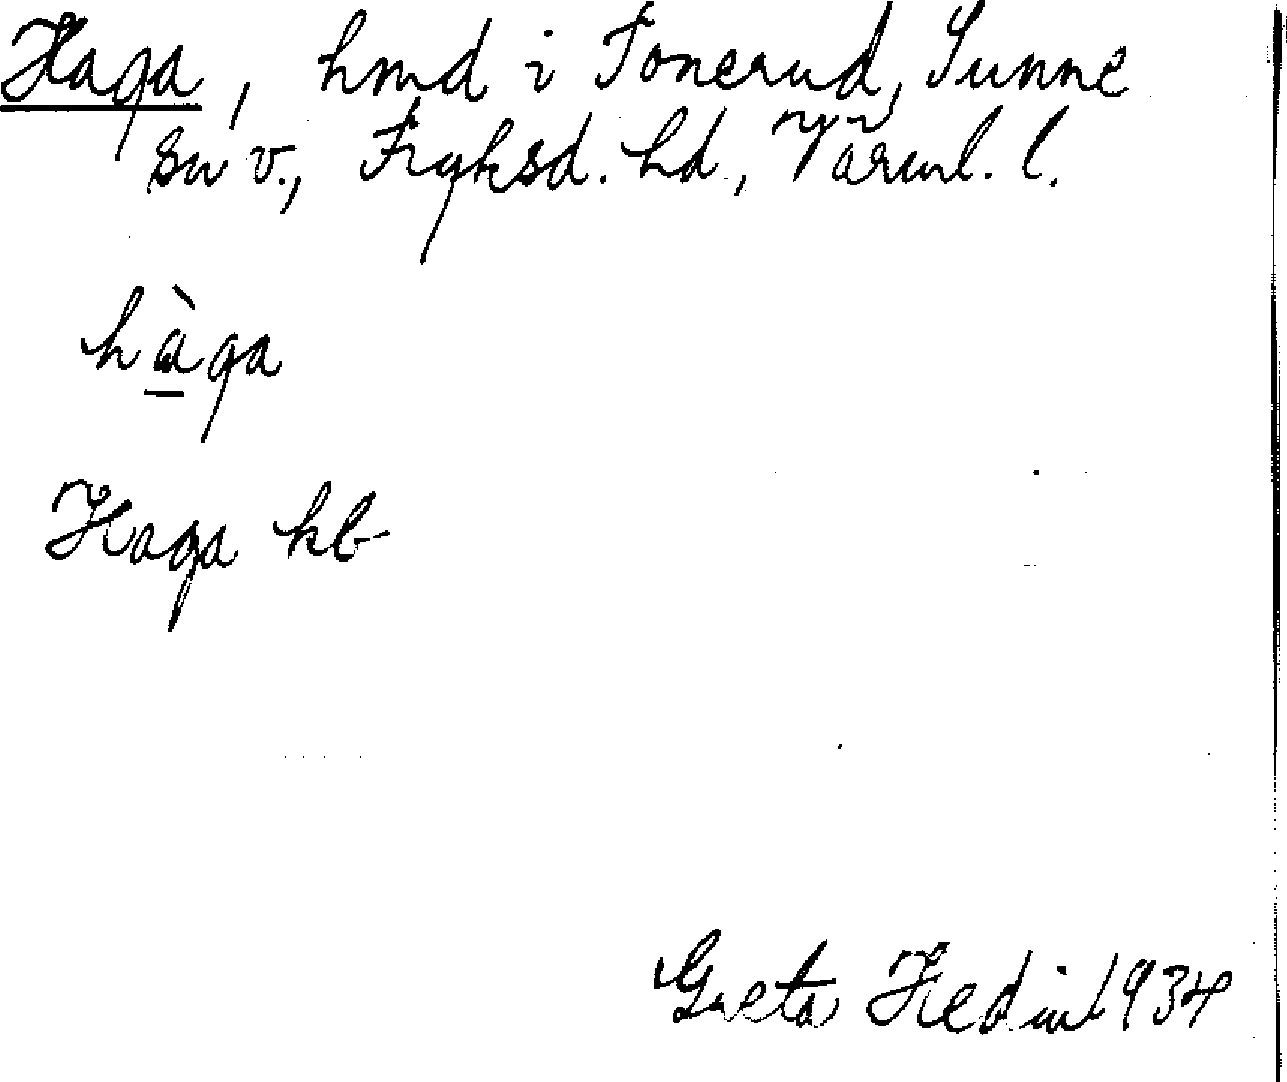 Haga, hmd i Tonerud, Sunne
sn v., Fryksd. hd, Värml. l.
hàga
Haga kb
Greta Hedin 1934